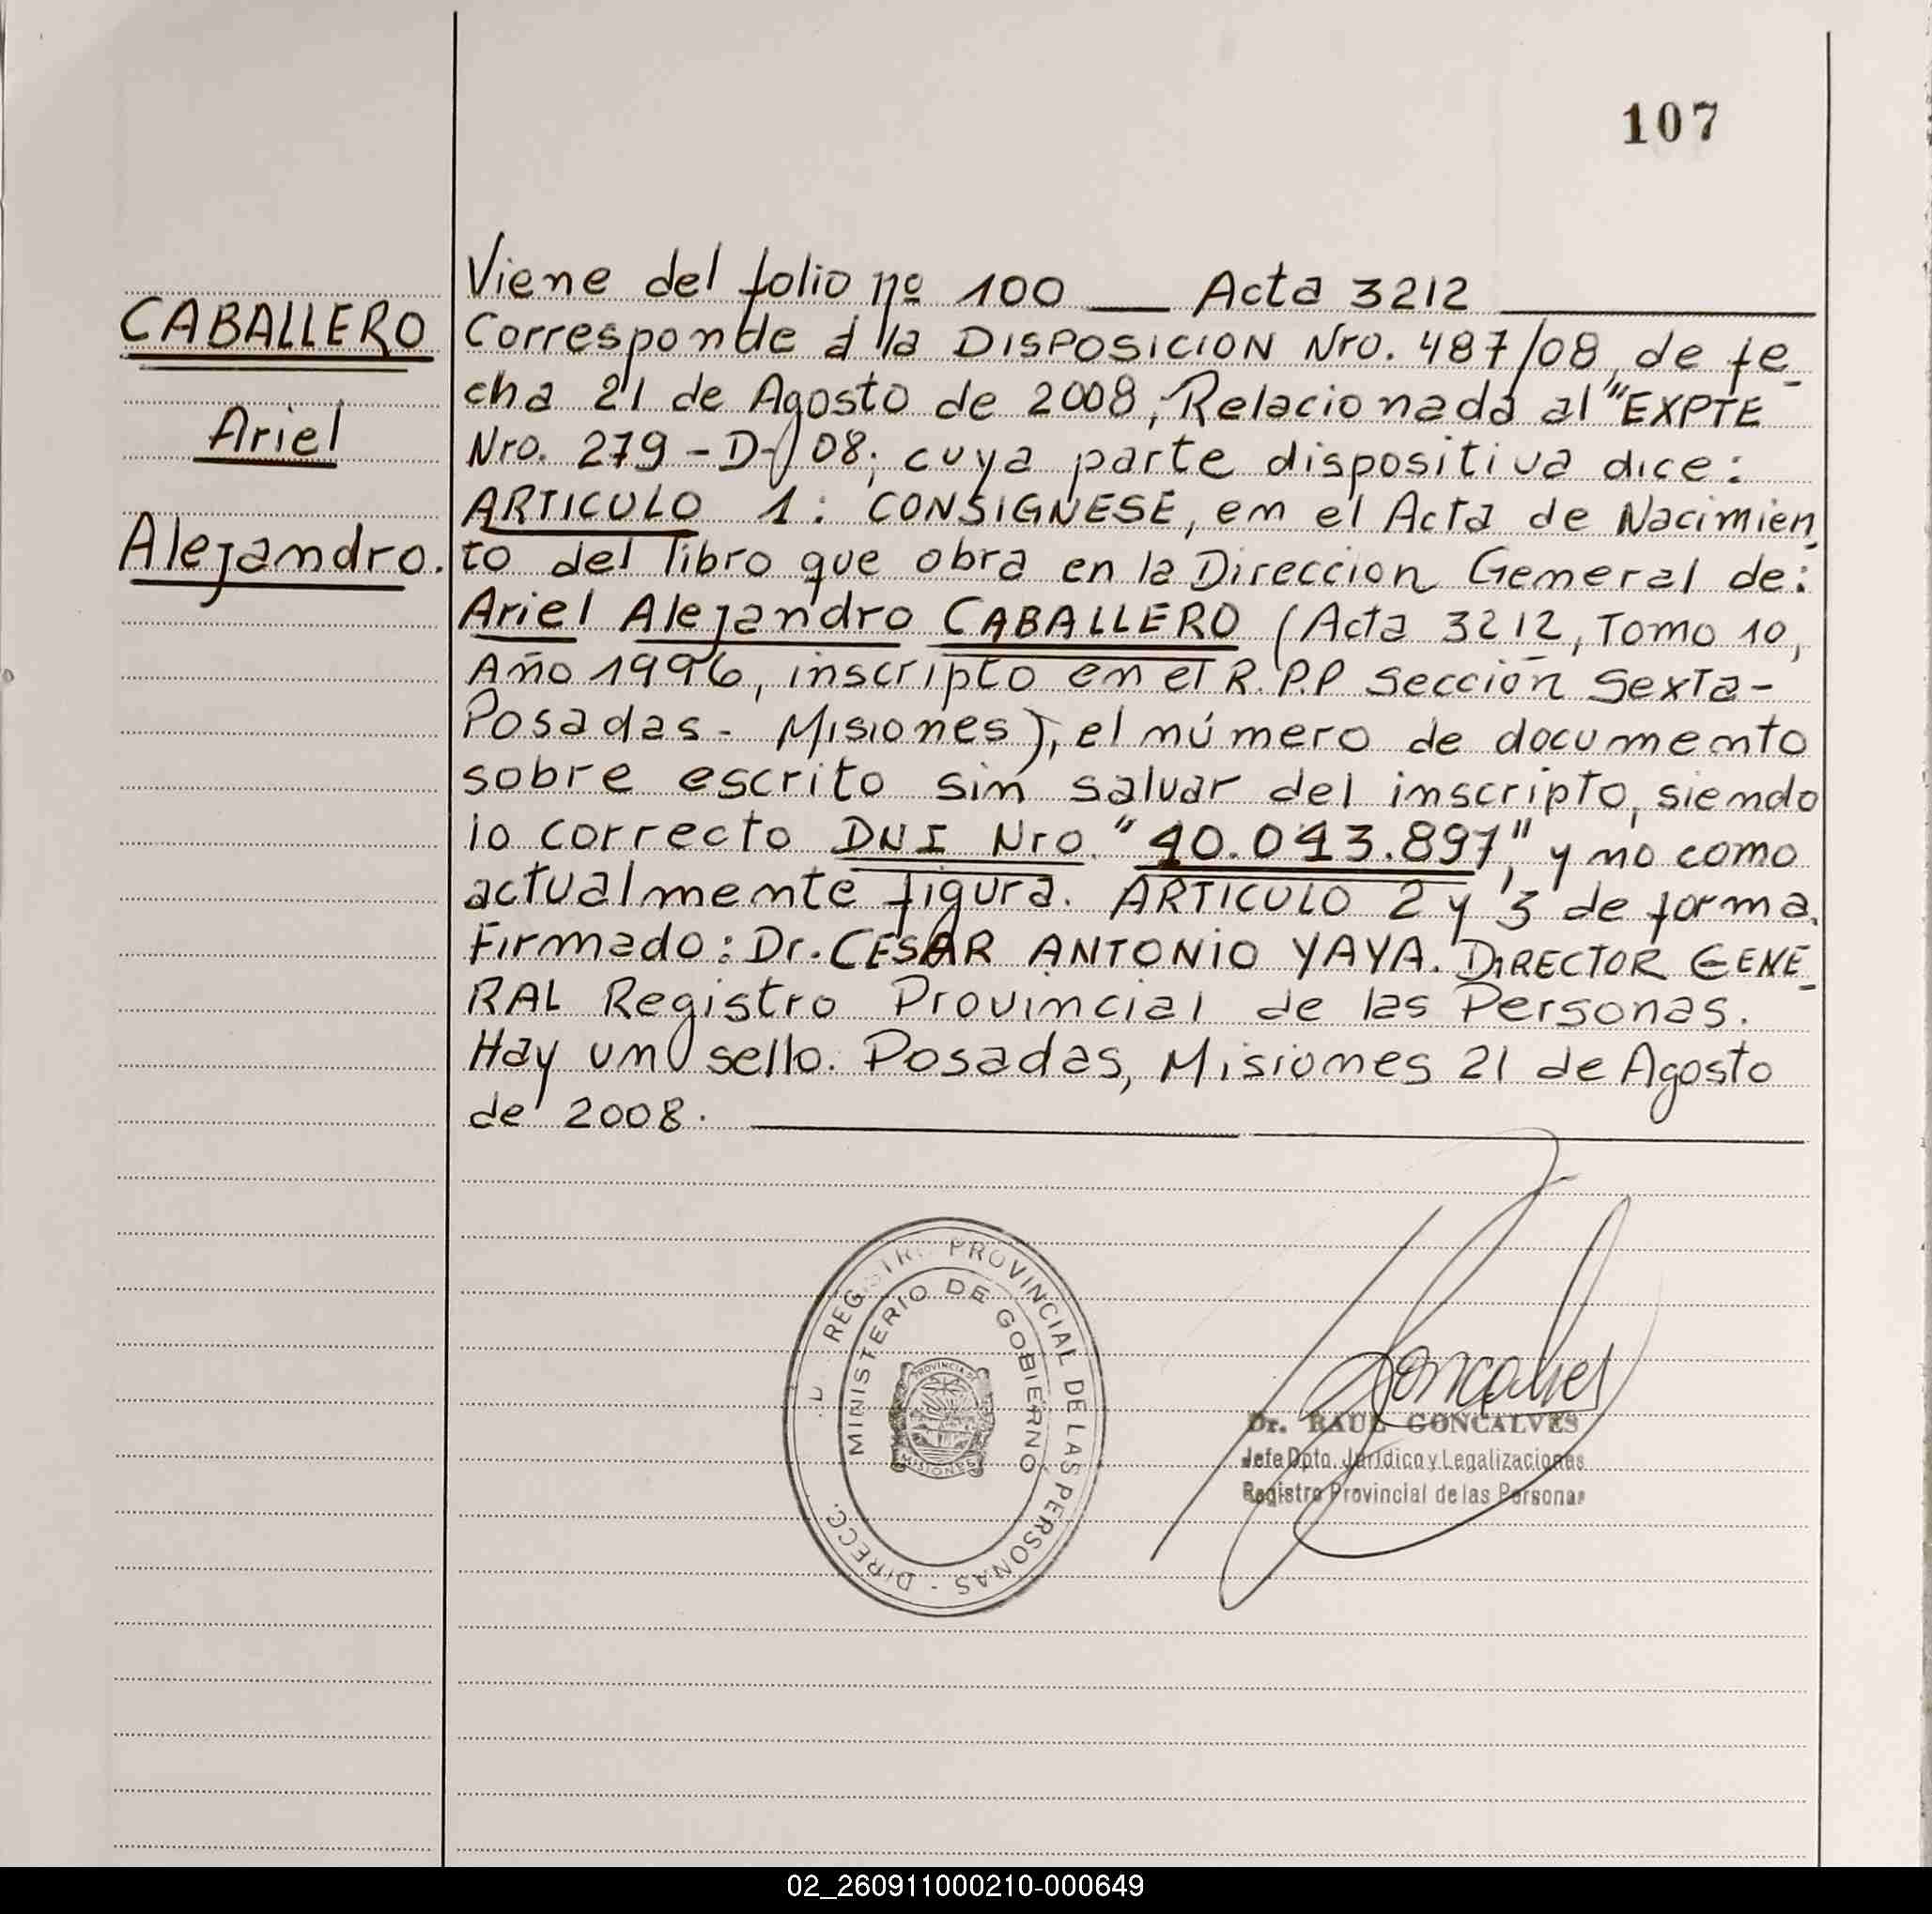 107
CABALLERO
Ariel
Alejandro.
Viene del folio nº 100 ___ Acta 3212 ___
Corresponde á la DISPOSICION Nro. 487/08, de fe-
cha 21 de Agosto de 2008, Relacionada al "EXPTE
Nro. 279-D-08; cuya parte dispositiva dice:
ARTICULO 1: CONSIGNESE, en el Acta de Nacimien-
to del libro que obra en la Direccion General de:
Ariel Alejandro CABALLERO (Acta 3212, Tomo 10,
Año 1996, inscripto en el R.P.P Sección Sexta-
Posadas- Misiones), el número de documento
sobre escrito sin salvar del inscripto, siendo
lo correcto DNI Nro. "40.043.897", y no como
actualmente figura. ARTICULO 2 y 3 de forma.
Firmado: Dr. CESAR ANTONIO YAYA. DIRECTOR GENE-
RAL Registro Provincial de las Personas.
Hay un sello. Posadas, Misiones 21 de Agosto
de 2008.
REGISTRO PROVINCIAL DE LAS PERSONAS - DIRECC.
MINISTERIO DE GOBIERNO
PROVINCIA DE
MISIONES
Goncalves
Dr. RAUL GONCALVES
Jefe Dpto. Jurídico y Legalizaciones
Registro Provincial de las Personas
02_260911000210-000649